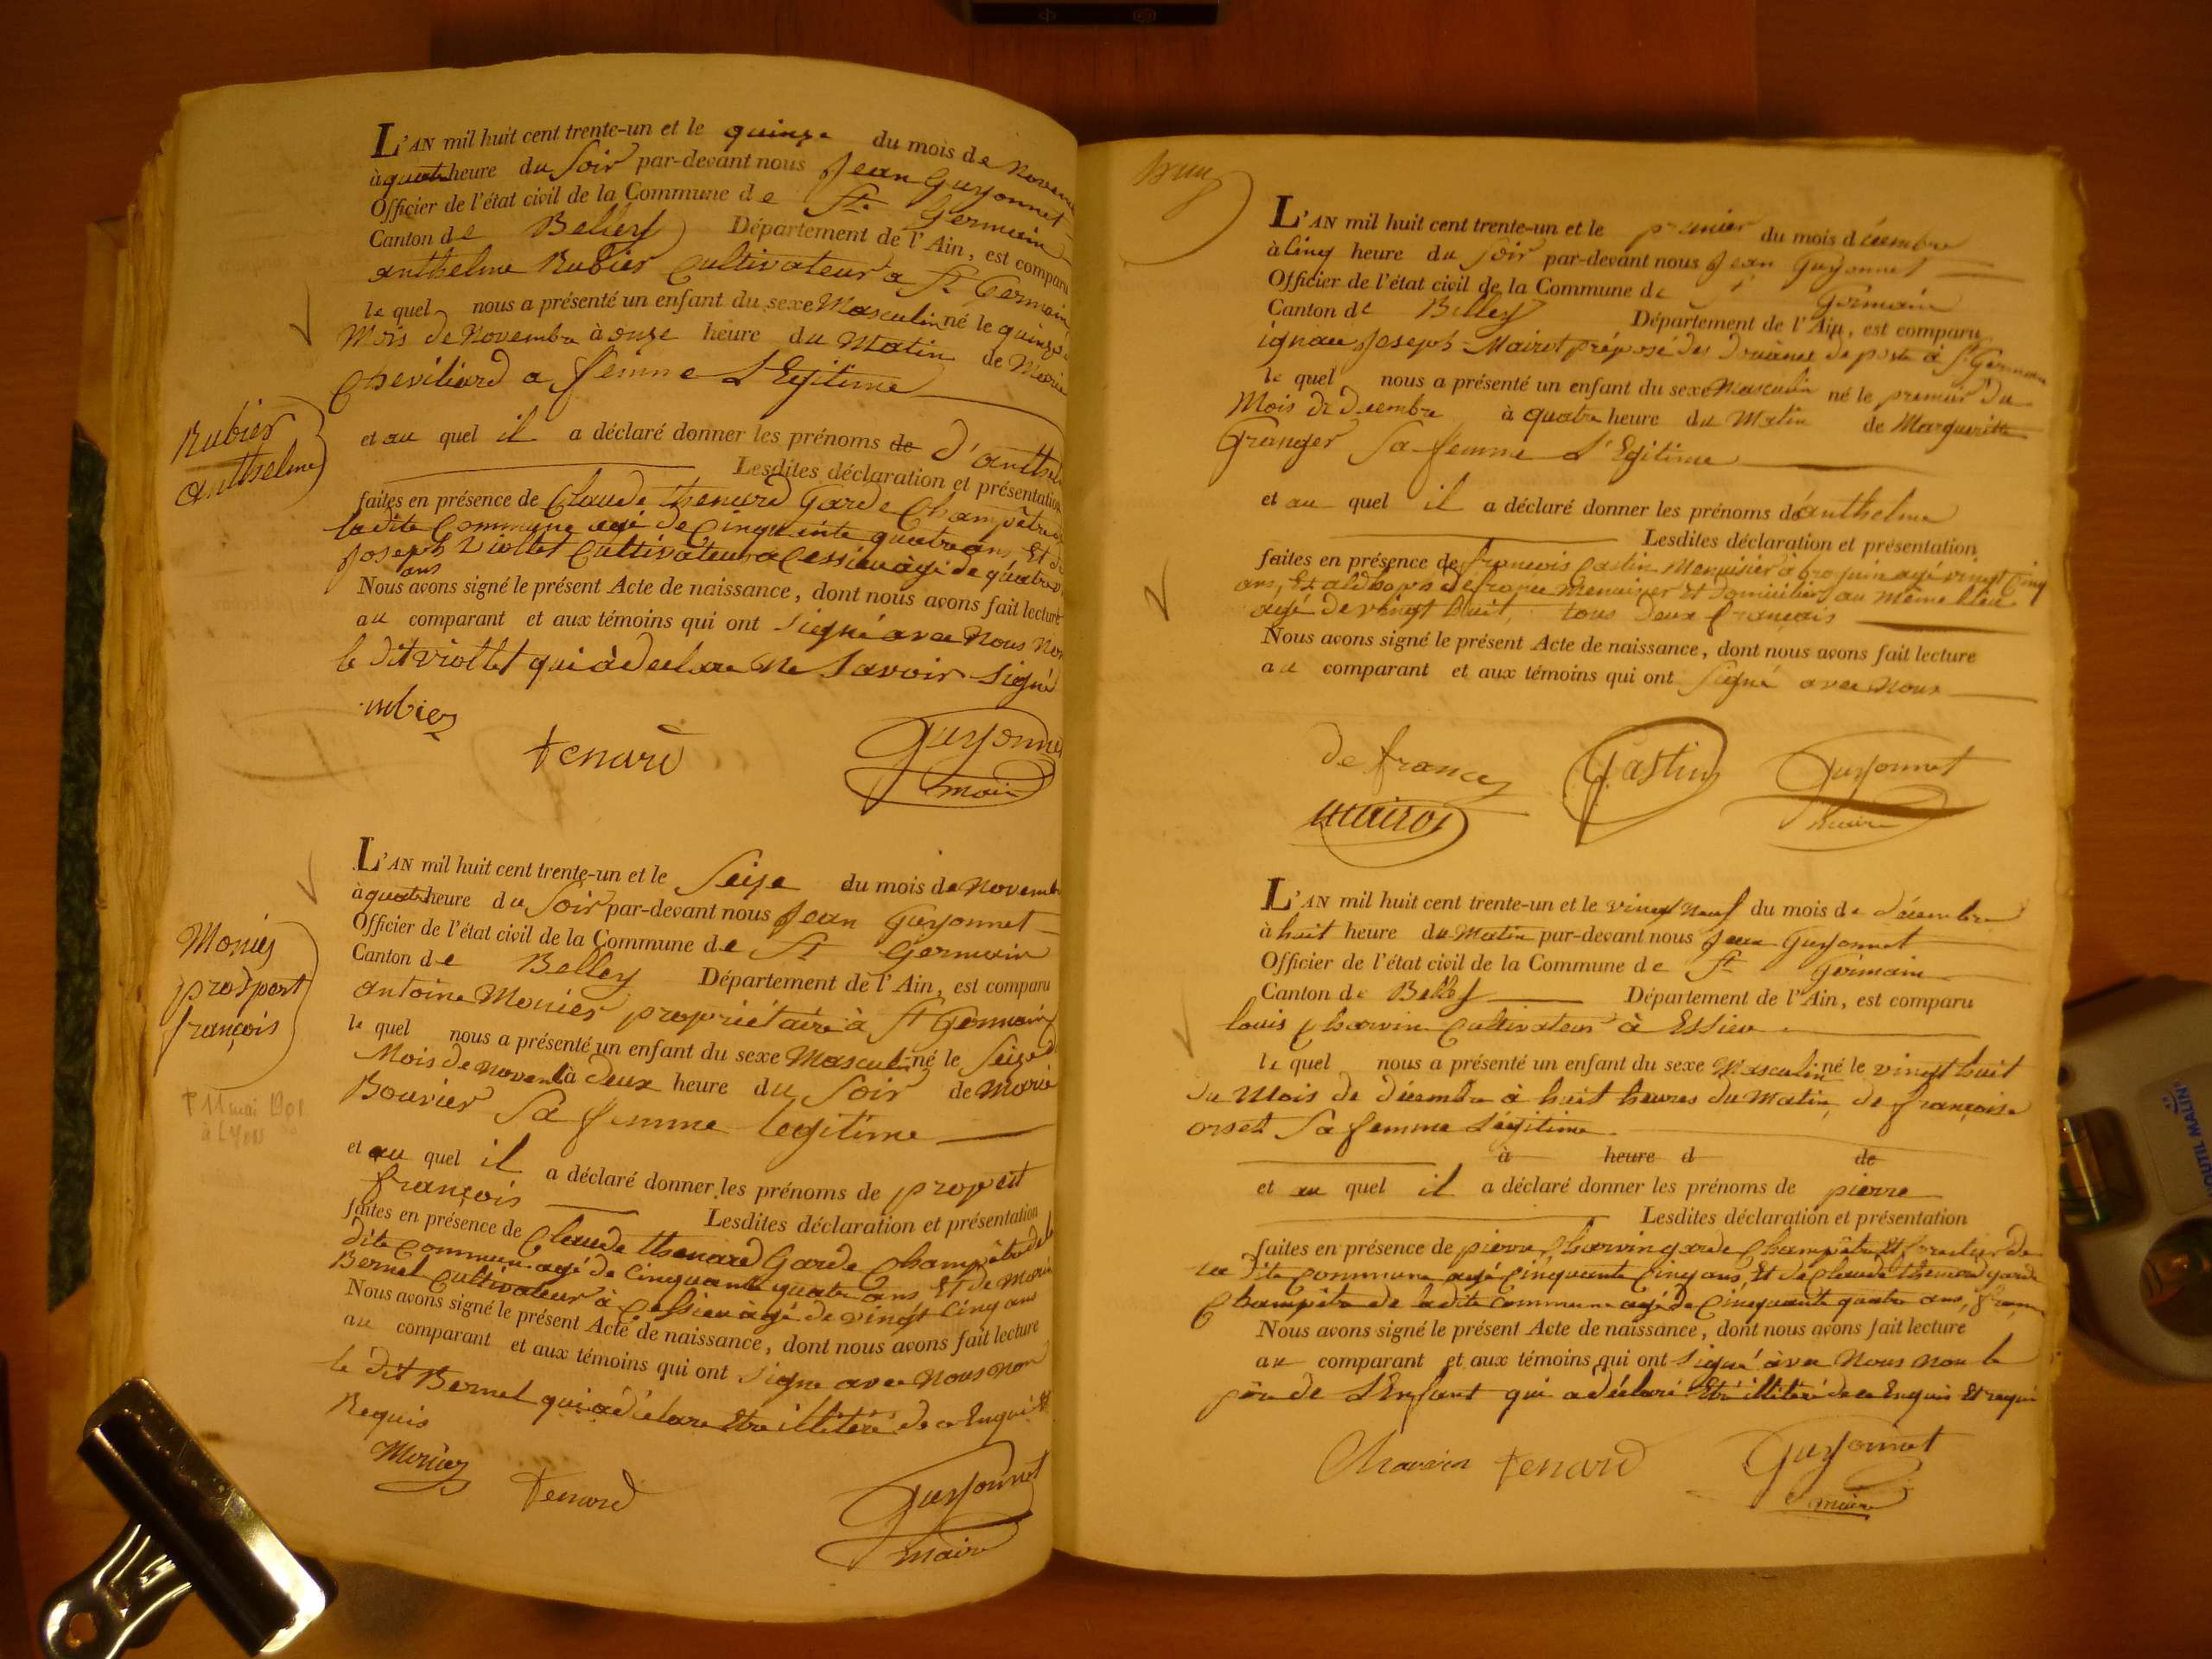 L'AN mil huit cent trente-un et le quinze du mois de Novem
à quatre heure du Soir par-devant nous Jean Guyonnet
Officier de l'état civil de la Commune de St. Germain
Canton de Belley Département de l'Ain, est comparu
anthelme Rubier Cultivateur a St. Germain
le quel nous a présenté un enfant du sexe Masculin né le quinze
Mois de Novembre à onze heure du Matin de Marie
Cheviliard a femme L'Egitime
Rubier
anthelme
et au quel il a déclaré donner les prénoms de d'anthel
Lesdites déclaration et présentation
faites en présence de Claude thenard Garde Champêtre de
la dite Commune agé de Cinquente quatre ans Et de
Joseph Viollet Cultivateur a Cessieu àgé de quatre
ans
Nous avons signé le présent Acte de naissance, dont nous avons fait lecture
au comparant et aux témoins qui ont Siegné avec Nous Non
le dit viollet qui à declare Ne Savoir Signé
rubier
tenard
Guyonnet
maire
L'AN mil huit cent trente-un et le Seize du mois de Novemb
à quatre heure du Soir par-devant nous Jean Guyonnet
Officier de l'état civil de la Commune de St Germain
Canton de Belley Département de l'Ain, est comparu
antoine Monier propriétaire à St Germain
le quel nous a présenté un enfant du sexe Masculin né le Seize d
Mois de Novemb à deux heure du Soir de Marie
Bouvier Sa femme legitime
Monier
prospert
françois
† 11 mai 1901
à Lyon
et au quel il a déclaré donner les prénoms de prospert
françois Lesdites déclaration et présentation
faites en présence de Claude thenard Garde Champêtre de la
dite Commune agé de Cinquante quatre ans Et de Marie
Bernel Cultivateur à Cessieu àgé de vingt Cinq ans
Nous avons signé le présent Acte de naissance, dont nous avons fait lecture
au comparant et aux témoins qui ont Signe avec Nous Non
le dit Bernel qui a déclare Etre illiteré de ce Enquis Et
Requis
Monier
Tenard
Guyonnet
maire
L'AN mil huit cent trente-un et le premier du mois décembre
à Cinq heure du Soir par-devant nous Jean Guyonnet
Officier de l'état civil de la Commune de Germain
Canton de Belley Département de l'Ain, est comparu
ignace Joseph Mairot préposé des Douànes de poste à St Germain
le quel nous a présenté un enfant du sexe Masculin né le premier Du
Mois de Decembre à quatre heure du Matin de Margueritte
Granger Sa femme L'Egitime
et au quel il a déclaré donner les prénoms de anthelme
Lesdites déclaration et présentation
faites en présence de francois Castin Menuisier a agé vingt Cinq
ans, Et de france Menuisier Et Domicilier au même lieu
agé de vingt huit, tous Deux français
Nous avons signé le présent Acte de naissance, dont nous avons fait lecture
au comparant et aux témoins qui ont Signé avec Nous
de france
Castin
Guyonnet
Mairot
maire
L'AN mil huit cent trente-un et le vingt Neuf du mois de décembre
à huit heure du Matin par-devant nous Jean Guyonnet
Officier de l'état civil de la Commune de St Germain
Canton de Belley Département de l'Ain, est comparu
louis Charvin Cultivateur à Essieu
le quel nous a présenté un enfant du sexe Masculin né le vingt huit
du Mois de décembre à huit heures du Matin, de françoise
orset Sa femme Légitime
à heure d de
et au quel il a déclaré donner les prénoms de pierre
Lesdites déclaration et présentation
faites en présence de pierre Charvin garde Champêtre Et forestier de
la dite Commune agé Cinquante Cinq ans, Et de Claude thenard garde
Champêtre de la dite Commune agé de Cinquante quatre ans,
Nous avons signé le présent Acte de naissance, dont nous avons fait lecture
au comparant et aux témoins qui ont Signé àvec Nous Non le
père de L'Enfant qui a déclaré Etre illiteré de ce Enquis Et requis
Charvin
tenard
Guyonnet
maire
OUTIL MALIN